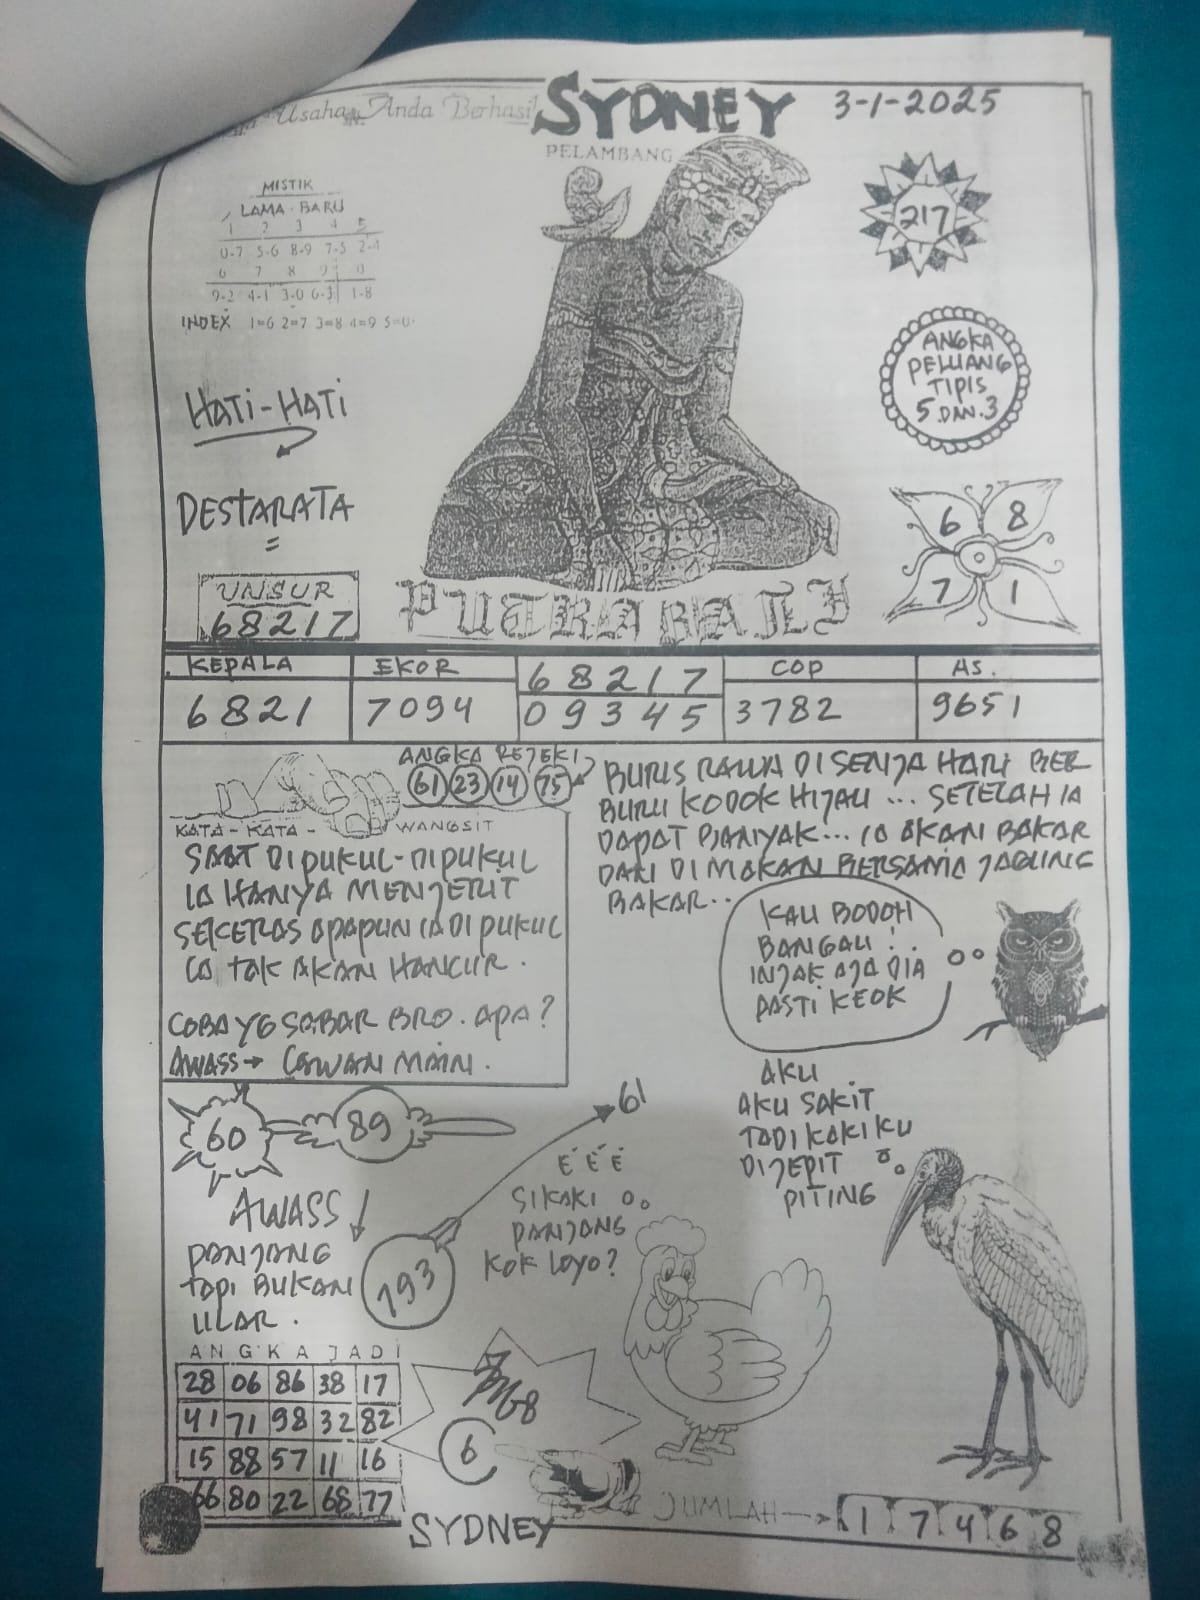 Usaha Anda Berhasil
SYDNEY
3-1-2025
PELAMBANG
MISTIK
LAMA - BARU
1 2 3 4 5
0-7 5-6 8-9 7-5 2-4
6 7 8 9 0
9-2 4-1 3-0 6-3 1-8
INDEX 1=6 2=7 3=8 4=9 5=0
217
ANGKA
PELUANG
TIPIS
5 DAN 3
HATI-HATI
DESTARATA
6 8
7 1
UNSUR
68217
PUTRA BALI
KEPALA
6821
EKOR
7094
68217
09345
COP
3782
AS.
9651
ANGKA REJEKI
61 23 14 75
KATA-KATA - WANGSIT
SAAT DIPUKUL-DIPUKUL
IA HANYA MENJERIT
SEKERAS APAPUN IA DIPUKUL
IA TAK AKAN HANCUR.
COBA YG SABAR BRO. APA?
AWASS → CAWAN MAIN.
BURIS RAWA DI SENJA HARI BER
BURU KODOK HIJAU ... SETELAH IA
DAPAT BANYAK... IA AKAN BAKAR
DAN DI MAKAN BERSAMA JAGUNG
BAKAR..
KAU BODOH
BANGAU!.
INJAK AJA DIA
PASTI KEOK
AKU
AKU SAKIT
TADI KAKI KU
DIJEPIT
PITING
60
89
61
E E E
SIKAKI
PANJANG
KOK LOYO?
AWASS
PANJANG
TAPI BUKAN
ULAR.
793
ANGKA JADI
28 06 86 38 17
41 71 98 32 82
15 88 57 11 16
66 80 22 68 77
6
JUMLAH → 1 7 4 6 8
SYDNEY